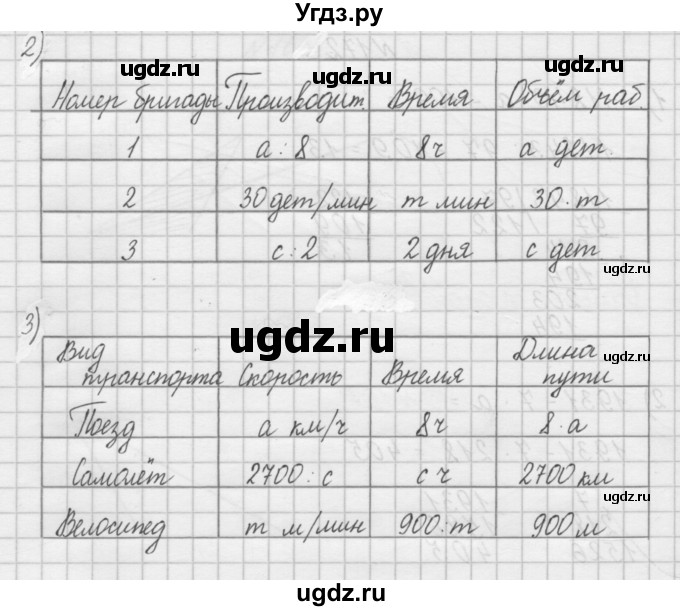 Угдз.ру
2)
ugdz.ru ugdz.ru ugdz.ru
Номер бригады Производит. Время Объём раб.
1 а : 8 8ч а дет.
ugdz.ru
2 30дет/мин т мин 30·т
3 с : 2 2 дня с дет
ugdz.ru
3)
ugdz.ru
Вид транспорта Скорость Время Длина пути
ugdz.ru
Поезд а км/ч 8ч 8·а
Самолёт 2700 : с с ч 2700 км
Велосипед т м/мин 900:т 900м
ugdz.ru
ugdz.ru